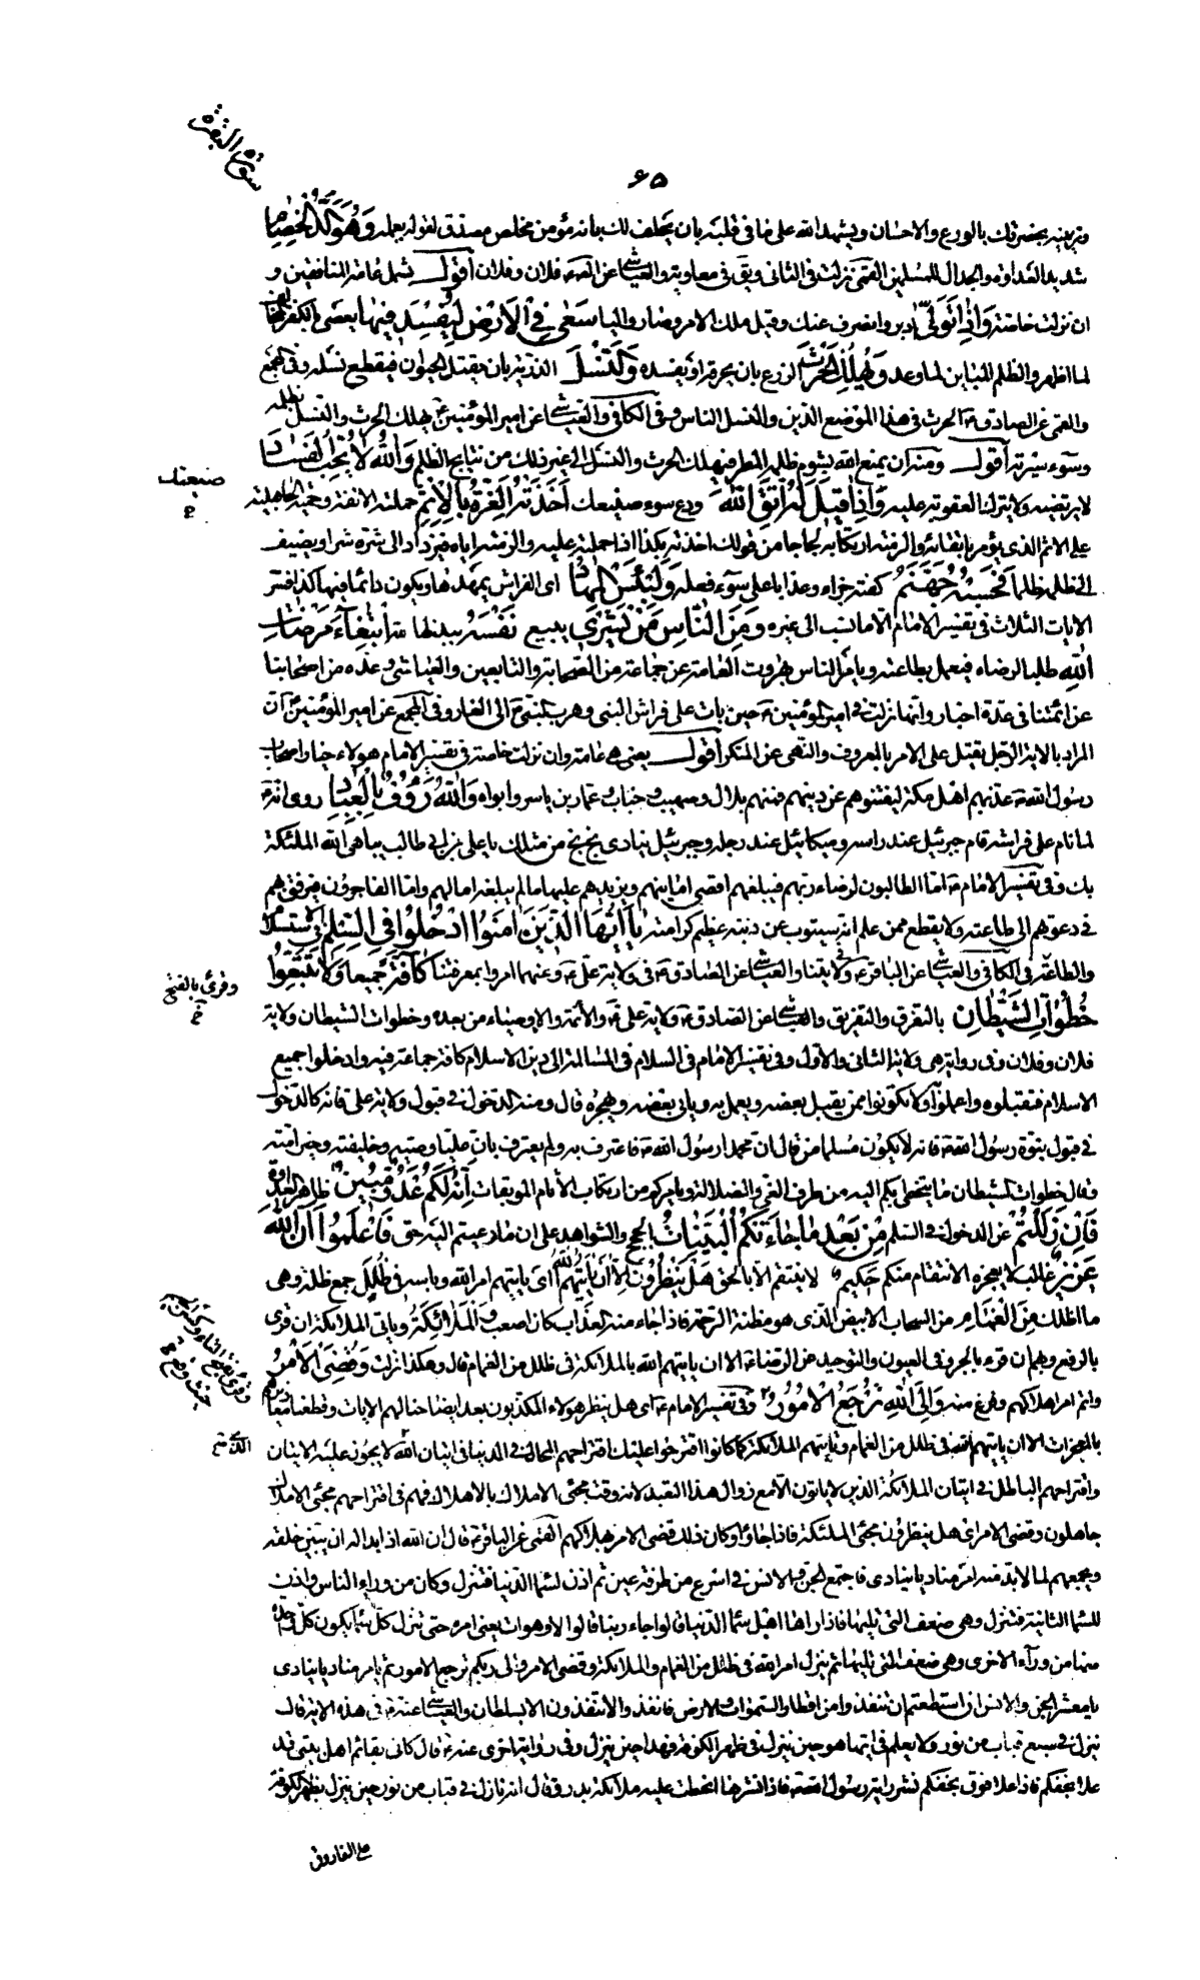 سورة البقرة
۶۵
وتزيينه بحضرتك بالورع والاحسان ويشهد الله على ما في قلبه بان يحلف لك بانه مؤمن مخلص مصدق لقوله بعمله وهو الد الخصام
شديد العداوة والجدال للمسلمين القمي نزلت في الثاني ويق في معاوية والعياشي عن الص فلان وفلان اقول يشمل عامة المنافقين و
ان نزلت خاصة واذا تولى ادبر وانصرف عنك وقيل ملك الامر وصار واليا سعى في الارض ليفسد فيها يعصي بالكفر المخالف
لما اظهر والظلم المباين لما وعد ويهلك الحرث الزرع بان يحرقه او يفسده والنسل الذرية بان يقتل الحيوان فيقطع نسله وفي المجمع
والقمي عن الصادق ع الحرث في هذا الموضع الدين والنسل الناس وفي الكافي والعياشي عن امير المؤمنين ع يهلك الحرث والنسل بظلمه
وسوء سيرته اقول ومنه ان يمنع الله بشوم ظلمه المطر فيهلك الحرث والنسل الى غير ذلك من نتايج الظلم والله لا يحب الفساد
لا يرتضيه ولا يترك العقوبة عليه واذا قيل له اتق الله ودع سوء صنيعك اخذته العزة بالاثم حملته الانفة وحمية الجاهلية
صنيعتك خ
على الاثم الذي يؤمر باتقائه والزمته ارتكابه لجاجا من قولك اخذته بكذا اذا حملته عليه والزمته اياه فيزداد الى شره شرا ويضيف
الى ظلمه ظلما فحسبه جهنم كفته جزاء وعذابا على سوء فعله ولبئس المهاد اي الفراش يمهدها ويكون دائما فيها كذا فسر
الايات الثلاث في تفسير الامام الا ما نسب الى غيره ومن الناس من يشري يبيع نفسه يبذلها لله ابتغاء مرضات
الله طلبا لرضاه فيعمل بطاعته ويامر الناس بها روت العامة عن جماعة من الصحابة والتابعين والعياشي وعدة من اصحابنا
عن ائمتنا في عدة اخبار وانها نزلت في امير المؤمنين ع حين بات على فراش النبي وهرب النبي ص الى الغار وفي المجمع عن امير المؤمنين ع ان
المراد بالاية الرجل يقتل على الامر بالمعروف والنهي عن المنكر اقول يعني هي عامة وان نزلت خاصة في تفسير الامام هؤلاء خيار اصحاب
رسول الله ص عذبهم اهل مكة ليفتنوهم عن دينهم فمنهم بلال وصهيب وخباب وعمار بن ياسر وابواه والله رؤف بالعباد روى انه
لما نام على فراشه قام جبرئيل عند راسه وميكائيل عند رجليه وجبرئيل ينادي بخ بخ من مثلك يا علي بن ابي طالب يباهي الله الملئكة
بك وفي تفسير الامام ع اما الطالبون لرضاء ربهم فيبلغهم اقصى امانيهم ويزيدهم عليها ما لم يبلغه امالهم واما الفاجرون فيرفق بهم
في دعوتهم الى طاعته ولا يقطع ممن علم انه سيتوب عن ذنبه عظيم كرامته يا ايها الذين امنوا ادخلوا في السلم في الاستسلام
والطاعة في الكافي والعياشي عن الباقر ع في ولايتنا والعياشي عن الصادق ع في ولاية علي ع وعنهما امروا بمعرفتنا كافة جميعا ولا تتبعوا
وقرئ بالفتح خ
خطوات الشيطان بالتفرق والتفريق والعياشي عن الصادق ع ولاية علي ع والائمة والاوصياء من بعده وخطوات الشيطان ولاية
فلان وفلان وفي رواية هي ولاية الثاني والاول وفي تفسير الامام في السلام في المسالمة الى دين الاسلام كافة جماعة فيه وادخلوا جميع
الاسلام فتقبلوه واعملوا ولا تكونوا ممن يقبل بعضه ويعمل به ويابى بعضه ويهجره قال ومنه الدخول في قبول ولاية علي فانه كالدخول
في قبول نبوة رسول الله ص فانه لا يكون مسلما من قال ان محمدا رسول الله ص فاعترف به ولم يعترف بان عليا وصيه وخليفته وخير امته
وقال خطوات الشيطان ما يتخطى بكم اليه من طرق الغي والضلالة ويامركم من ارتكاب الاثام الموبقات انه لكم عدو مبين ظاهر العداوة
فان زللتم عن الدخول في السلم من بعد ما جاءتكم البينات الحجج والشواهد على ان ما دعيتم اليه حق فاعلموا ان الله
عزيز غالب لا يعجزه الانتقام منكم حكيم لا ينتقم الا بالحق هل ينظرون الا ان ياتيهم الله اى ياتيهم امر الله وباسه في ظلل جمع ظلة وهي
ما اظلك من الغمام من السحاب الابيض الذي هو مظنة الرحمة فاذا جاء منه العذاب كان اصعب والملائكة وياتي الملائكة ان قرئ
بالرفع وبهم ان قرء بالجر وفي العيون والتوحيد عن الرضا ع الا ان ياتيهم الله بالملائكة في ظلل من الغمام قال وهكذا نزلت وقضي الامر
واتم امر اهلاكهم وفرغ منه والى الله ترجع الامور وفي تفسير الامام ع اى هل ينظر هؤلاء المكذبون بعد ايضاحنا لهم الايات وقطعنا معاذيرهم
بالمعجزات الا ان ياتيهم الله في ظلل من الغمام وياتيهم الملائكة كما كانوا اقترحوا عليك اقتراحهم المحال في الدنيا في اتيان الله لا يجوز عليه الاتيان
واقتراحهم الباطل في اتيان الملائكة الذين لا ياتون الا مع زوال هذا التعبد لانه وقت مجئ الاملاك بالاهلاك فهم في اقتراحهم مجئ الاملاك
جاهلون وقضي الامر اى هل ينظرون مجئ الملئكة فاذا جاؤا وكان ذلك قضي الامر بهلاكهم القمي عن الباقر ع قال ان الله اذا بدا له ان يبين خلقه
ويجمعهم لما لا بد منه امر مناديا ينادي فاجتمع الجن والانس في اسرع من طرفة عين ثم اذن لسماء الدنيا فتنزل وكان من وراء الناس واذن
للسماء الثانية فتنزل وهي ضعف التي تليها فاذا راها اهل سماء الدنيا قالوا جاء ربنا قالوا لا وهو ات يعني امره حتى تنزل كل سماء يكون كل واحدة
منها من وراء الاخرى وهي ضعف التي تليها ثم ينزل امر الله في ظلل من الغمام والملائكة وقضي الامر والى ربكم ترجع الامور ثم يامر مناديا ينادي
يا معشر الجن والانس ان استطعتم ان تنفذوا من اقطار السموات والارض فانفذوا لا تنفذون الا بسلطان والعياشي عنه ع في هذه الاية قال
ينزل في سبع قباب من نور ولا يعلم في ايها هو حين ينزل في ظهر الكوفة فهذا حين ينزل وفي رواية اخرى عنه ع قال كاني بقائم اهل بيتي قد
علا نجفكم فاذا علا فوق نجفكم نشر راية رسول الله ص فاذا نشرها انحطت عليه ملائكة بدر وقال انه نازل في قباب من نور حين ينزل بظهر الكوفة
على الفاروق